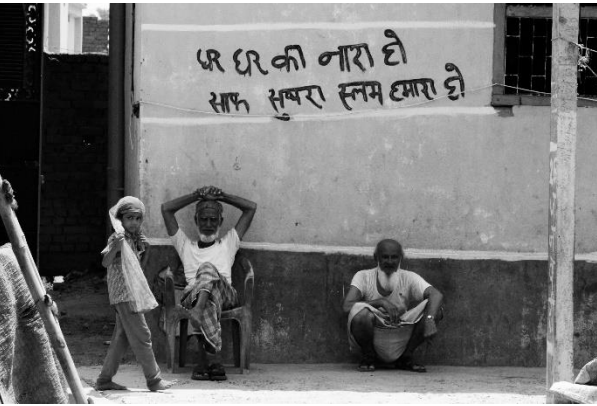 घर घर की नारा हो
साफ सुथरा स्लम हमारा हो